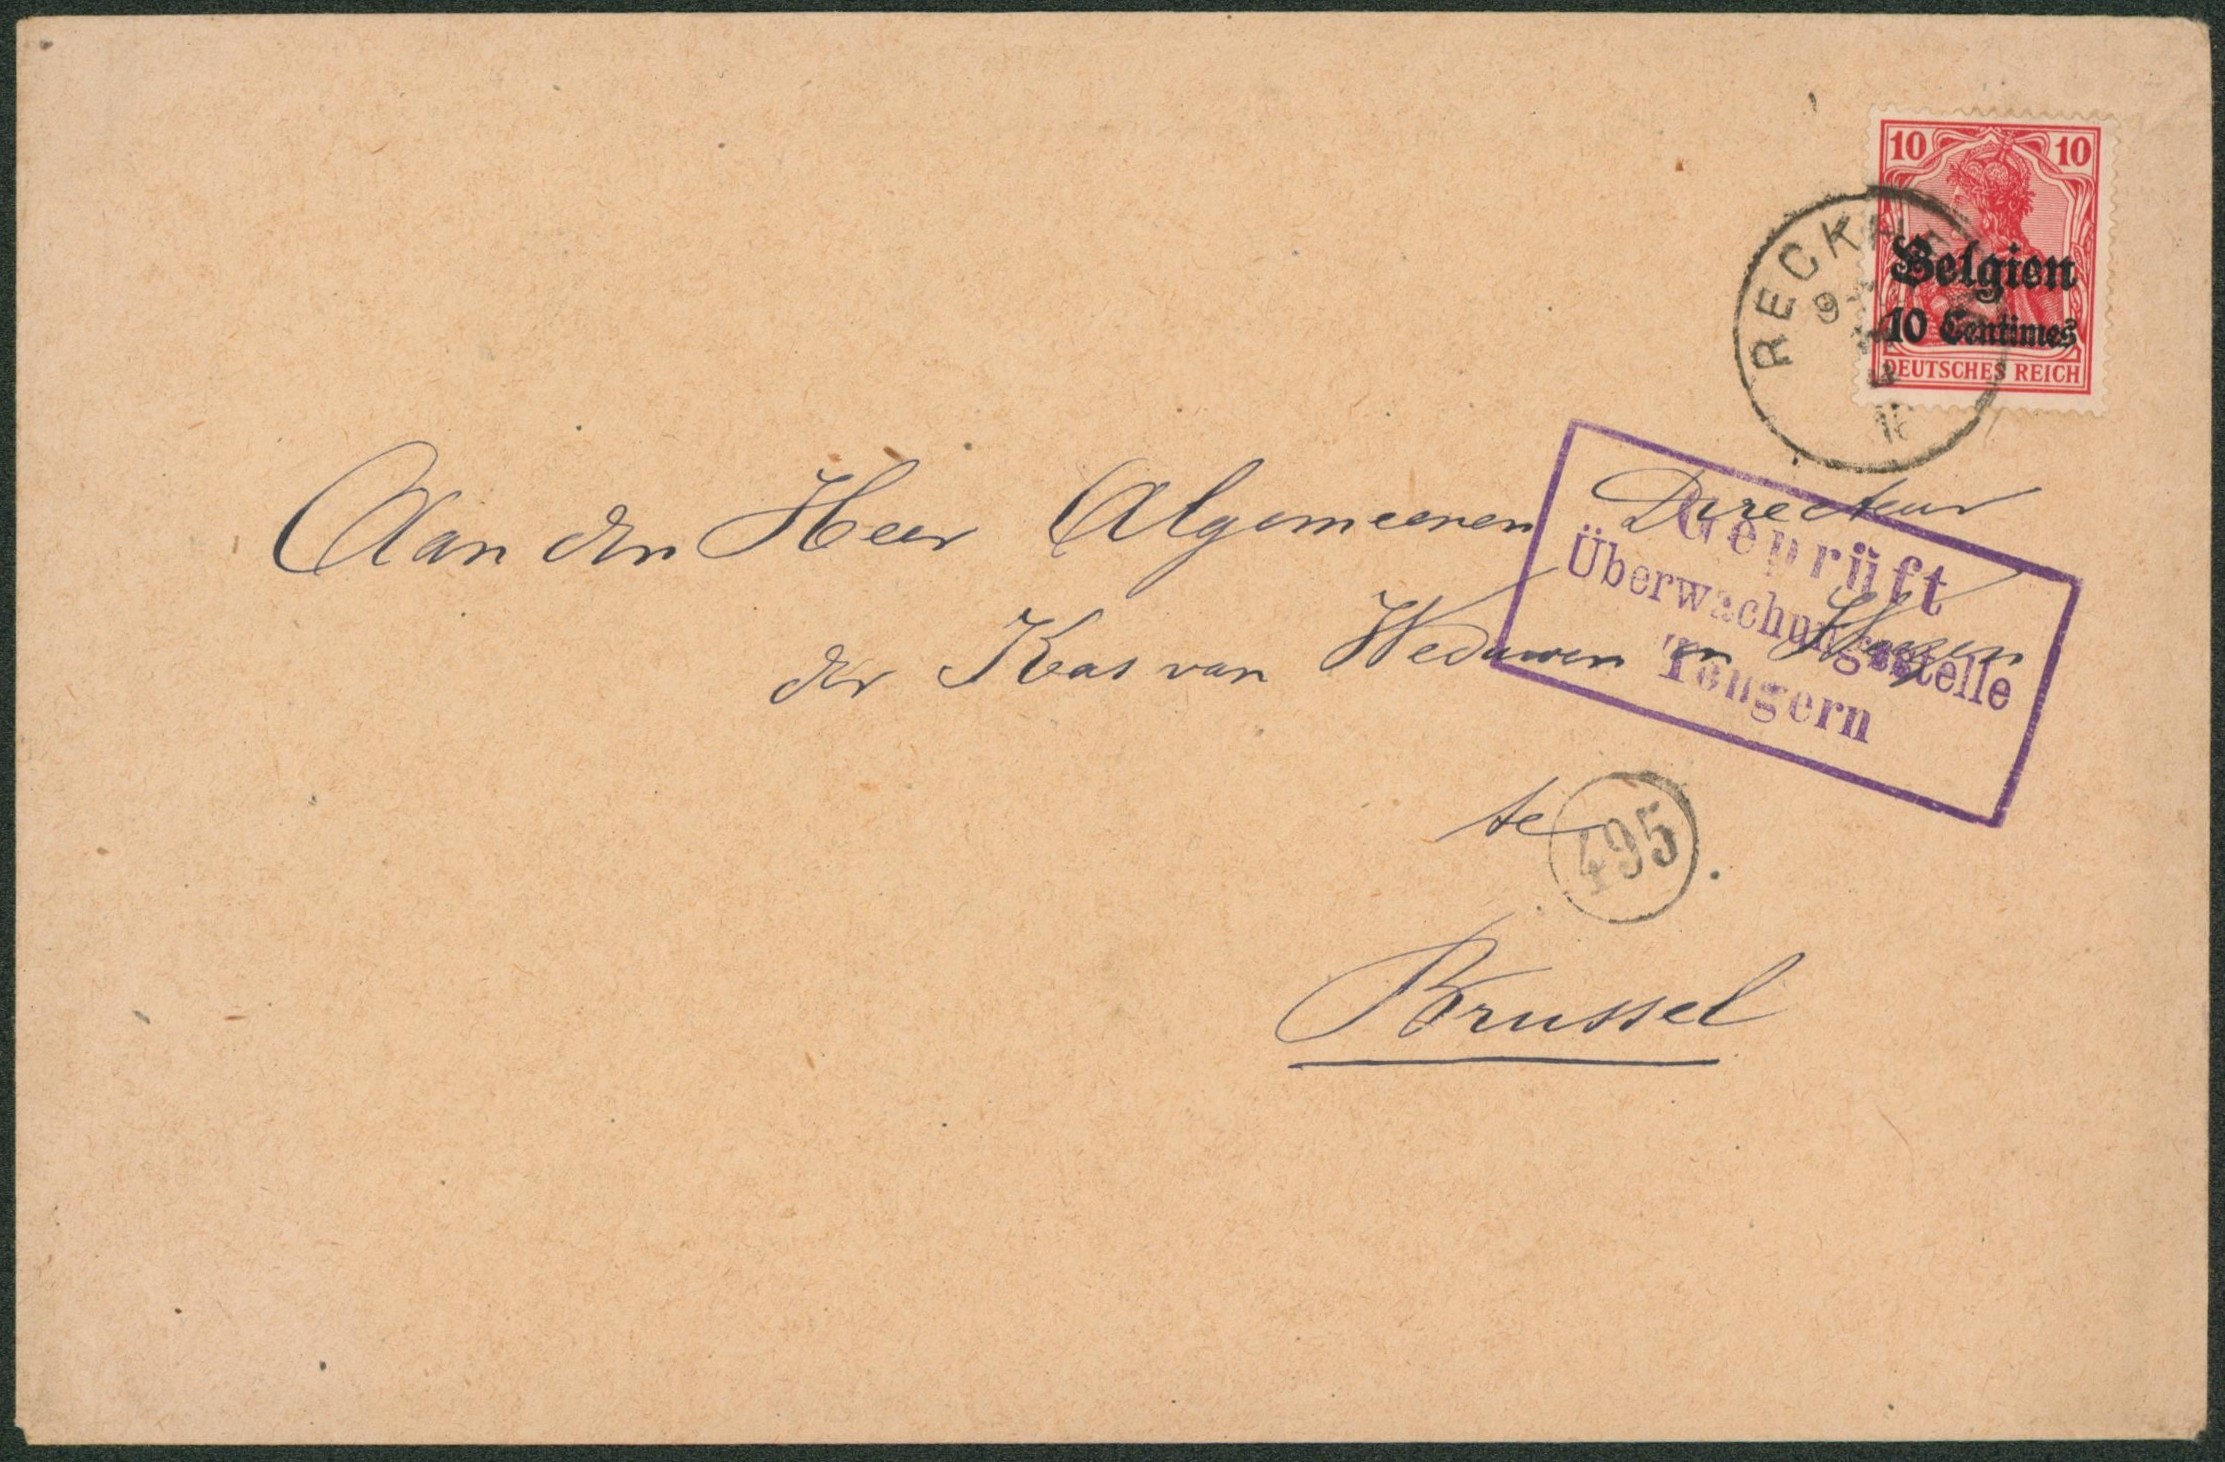 10 10
Belgien
10 Centimes
DEUTSCHES REICH
RECKHEIM
9
Aan den Heer Algemeenen Directeur
der Kas van Weduwen en Weezen
te
Brussel
Geprüft
Überwachungsstelle
Tongern
495